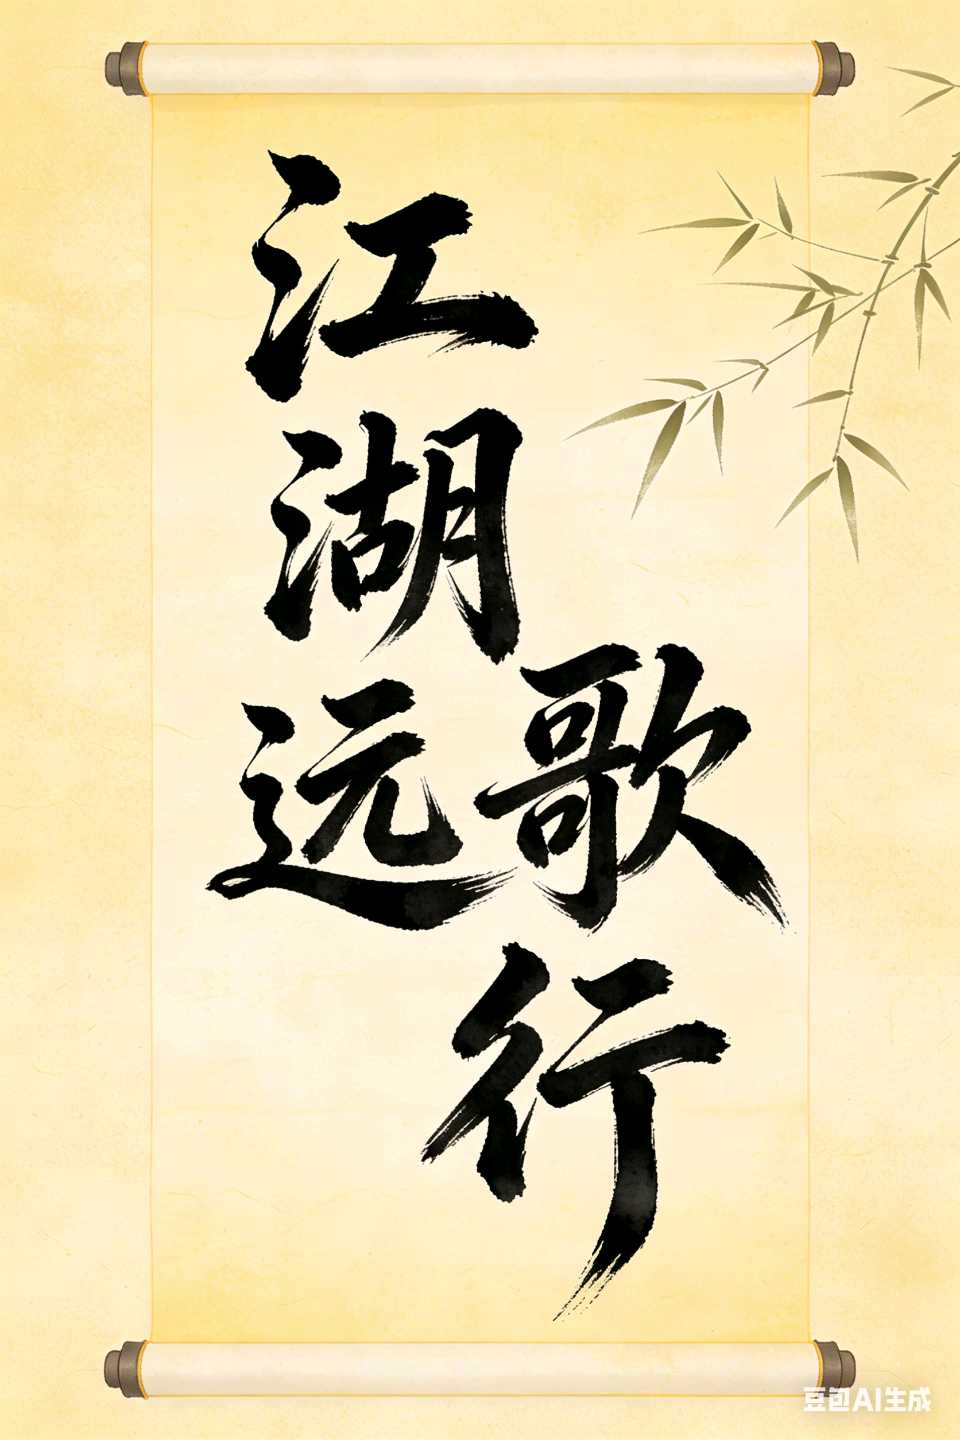 江湖远
歌行
豆包AI生成